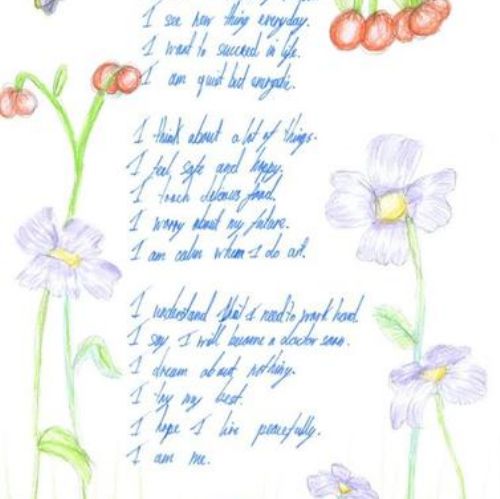 I see new thing everyday.
I want to succeed in life.
I am quiet but energetic.
I think about a lot of things.
I feel safe and happy.
I touch delicious food.
I worry about my future.
I am calm when I do art.
I understand that I need to work hard.
I say I will become a doctor soon.
I dream about nothing.
I try my best.
I hope I live peacefully.
I am me.